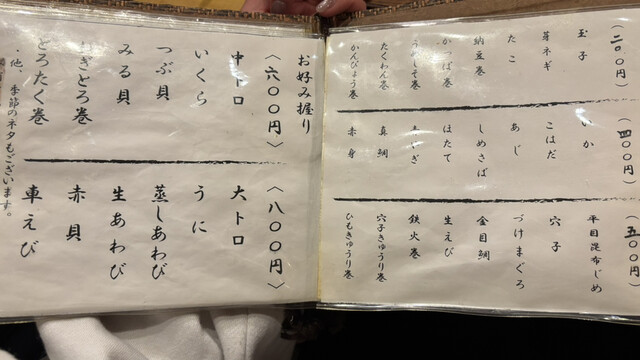 (二〇〇円)
玉子
芽ネギ
たこ
納豆巻
かっぱ巻
うめしそ巻
たくわん巻
かんぴょう巻
(四〇〇円)
いか
こはだ
あじ
しめさば
ほたて
真鯛
赤身
(五〇〇円)
平目昆布じめ
穴子
づけまぐろ
金目鯛
生えび
鉄火巻
穴子きゅうり巻
ひもきゅうり巻
お好み握り
〈六〇〇円〉
中トロ
いくら
つぶ貝
みる貝
ねぎとろ巻
とろたく巻
〈八〇〇円〉
大トロ
うに
蒸しあわび
生あわび
赤貝
車えび
他、季節のネタもございます。